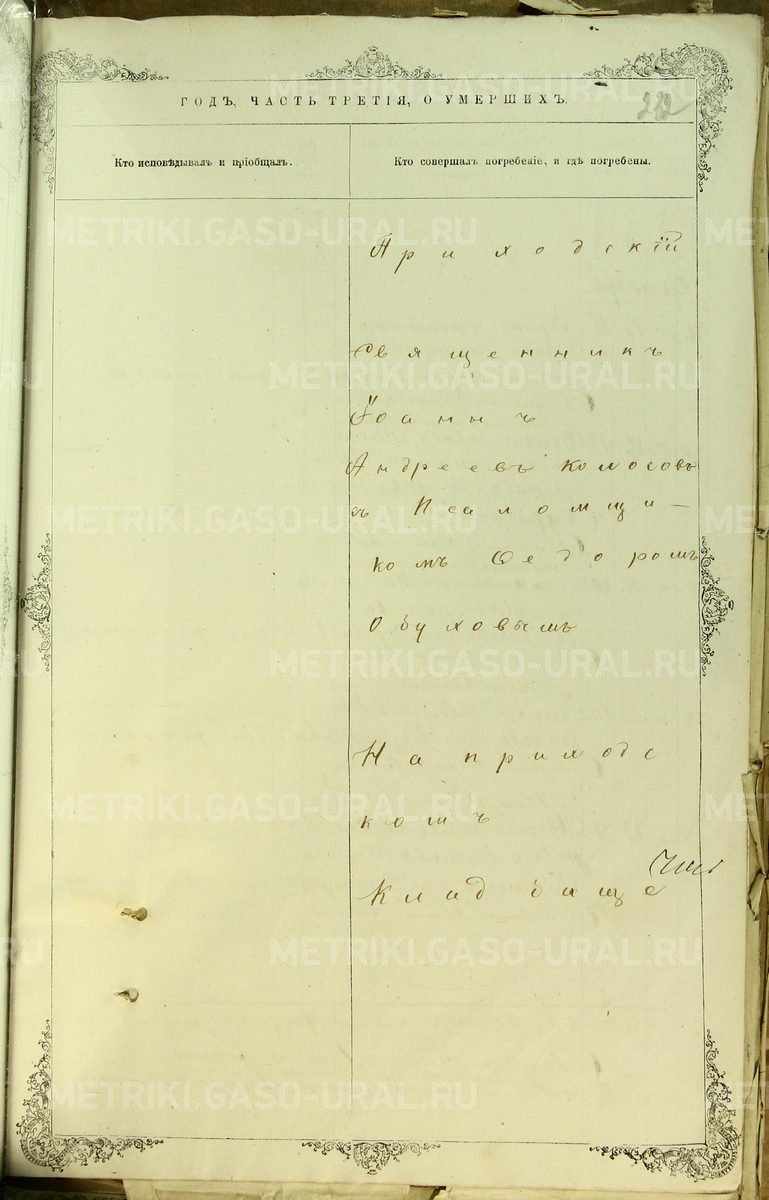 ГОДЪ, ЧАСТЬ ТРЕТІЯ, О УМЕРШИХЪ.
Кто исповѣдывалъ и пріобщалъ.
Кто совершалъ погребеніе, и гдѣ погребены.
Приходскій
Священникъ
Іоаннъ
Андреевъ Колосовъ
съ Псаломщи-
комъ Ѳедоромъ
Обуховымъ
На приходс
комъ
Кладбище
METRIKI.GASO-URAL.RU